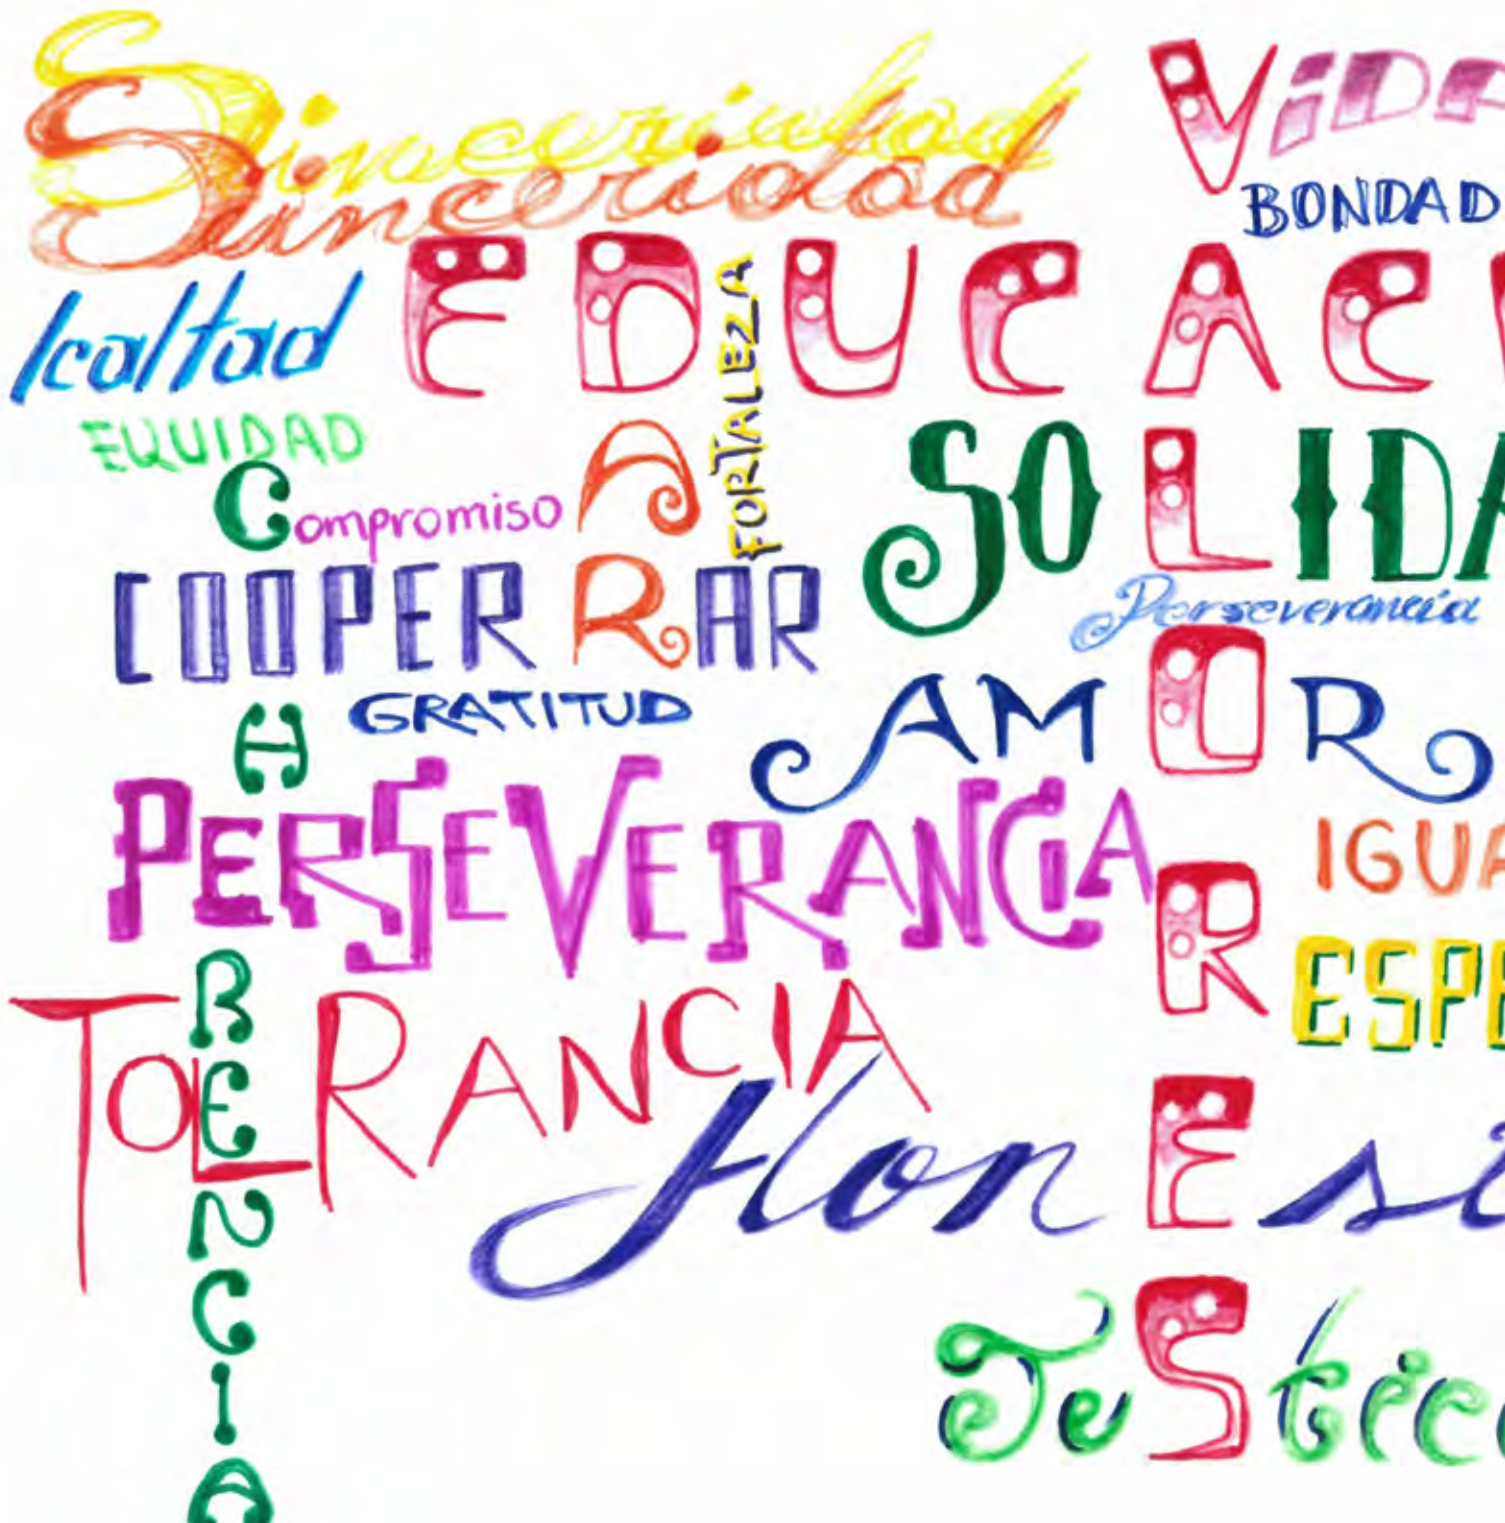 Sinceridad
Sinceridad
ViDA
BONDAD
lealtad
EDUCACI
VALORES
FORTALEZA
EQUIDAD
Compromiso
DAR
SOLIDA
COOPERRAR
Perseverancia
GRATITUD
AMOR
COHERENCIA
PERSEVERANCIA
IGUA
ESPE
TOLERANCIA
Honesti
JuStic